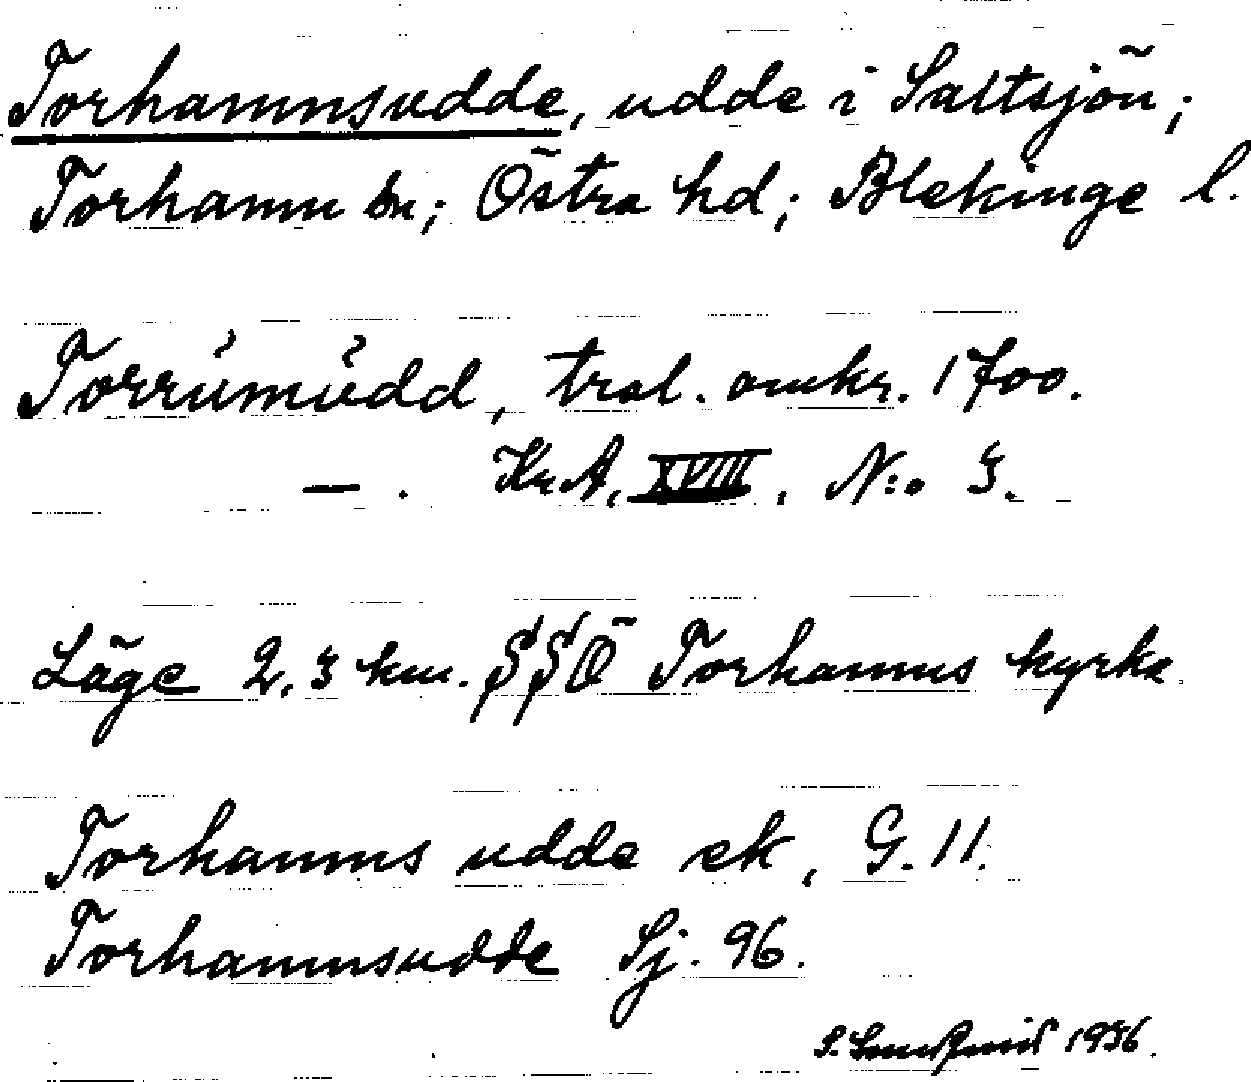 Torhamnsudde, udde i Saltsjön;
Torhamn sn; Östra hd; Blekinge l.
Torrúmúdd, tral. omkr. 1700.
— . Kr.A, XVIII, N:o 3.
Läge 2,3 km. SSÖ Torhamns kyrka.
Torhamns udde ek, G. 11.
Torhamnsudde Sj. 96.
S. 1936.